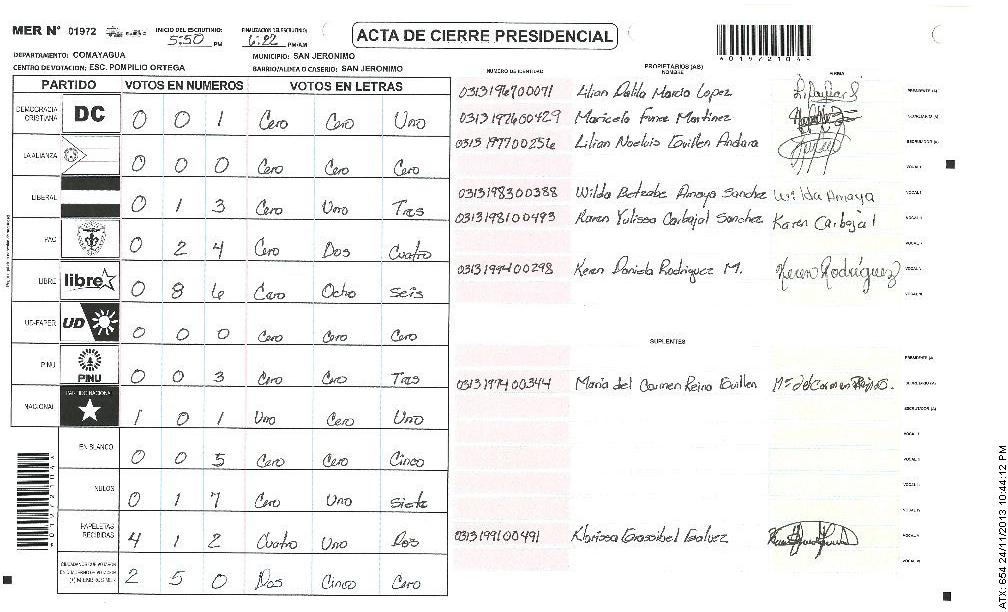 MER N° 01972
INICIO DEL ESCRUTINIO: 5:50 PM
FINALIZACION DEL ESCRUTINIO: 6:22 PM/AM
ACTA DE CIERRE PRESIDENCIAL
DEPARTAMENTO: COMAYAGUA
MUNICIPIO: SAN JERONIMO
CENTRO DE VOTACION: ESC. POMPILIO ORTEGA
BARRIO/ALDEA O CASERIO: SAN JERONIMO
PARTIDO VOTOS EN NUMEROS VOTOS EN LETRAS
DEMOCRACIA CRISTIANA DC 0 0 1 Cero Cero Uno
LA ALIANZA 0 0 0 Cero Cero Cero
LIBERAL 0 1 3 Cero Uno Tres
PAC 0 2 4 Cero Dos Cuatro
LIBRE libre 0 8 6 Cero Ocho Seis
UD-FAPER UD 0 0 0 Cero Cero Cero
PINU PINU 0 0 3 Cero Cero Tres
NACIONAL PARTIDO NACIONAL 1 0 1 Uno Cero Uno
EN BLANCO 0 0 5 Cero Cero Cinco
NULOS 0 1 7 Cero Uno Siete
PAPELETAS RECIBIDAS 4 1 2 Cuatro Uno Dos
2 5 0 Dos Cinco Cero
NUMERO DE IDENTIDAD PROPIETARIOS (AS) NOMBRE FIRMA
Lilian Dalila Marcia Lopez PRESIDENTE (A)
0313197600429 Maricela Funez Martinez SECRETARIO (A)
Lilian Noelvis Guillen Andara ESCRUTADOR (A)
VOCAL I
0313198300388 Wilda Betzabe Amaya Sanchez Wilda Amaya
0313198100493 Karen Yulissa Carbajal Sanchez Karen Carbajal
0313199400298 Keren Daniela Rodriguez M. Keren Rodríguez
SUPLENTES
PRESIDENTE (A)
0313197400344 Maria del Carmen Reina Guillen SECRETARIO (A)
ESCRUTADOR (A)
0313199100491 Klarissa Grassibel Galvez
ATX: 654 24/11/2013 10:44:12 PM